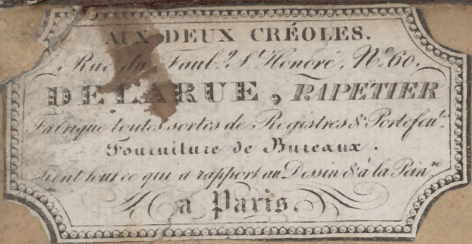 AUX DEUX CRÉOLES.
Rue du Faub.g S.t Honoré, N.o 60.
DELARUE, PAPETIER
Fabrique toutes sortes de Registres & Portefeu.lls
Fourniture de Bureaux.
Tient tout ce qui a rapport au Dessin & à la Pein.re
à Paris.